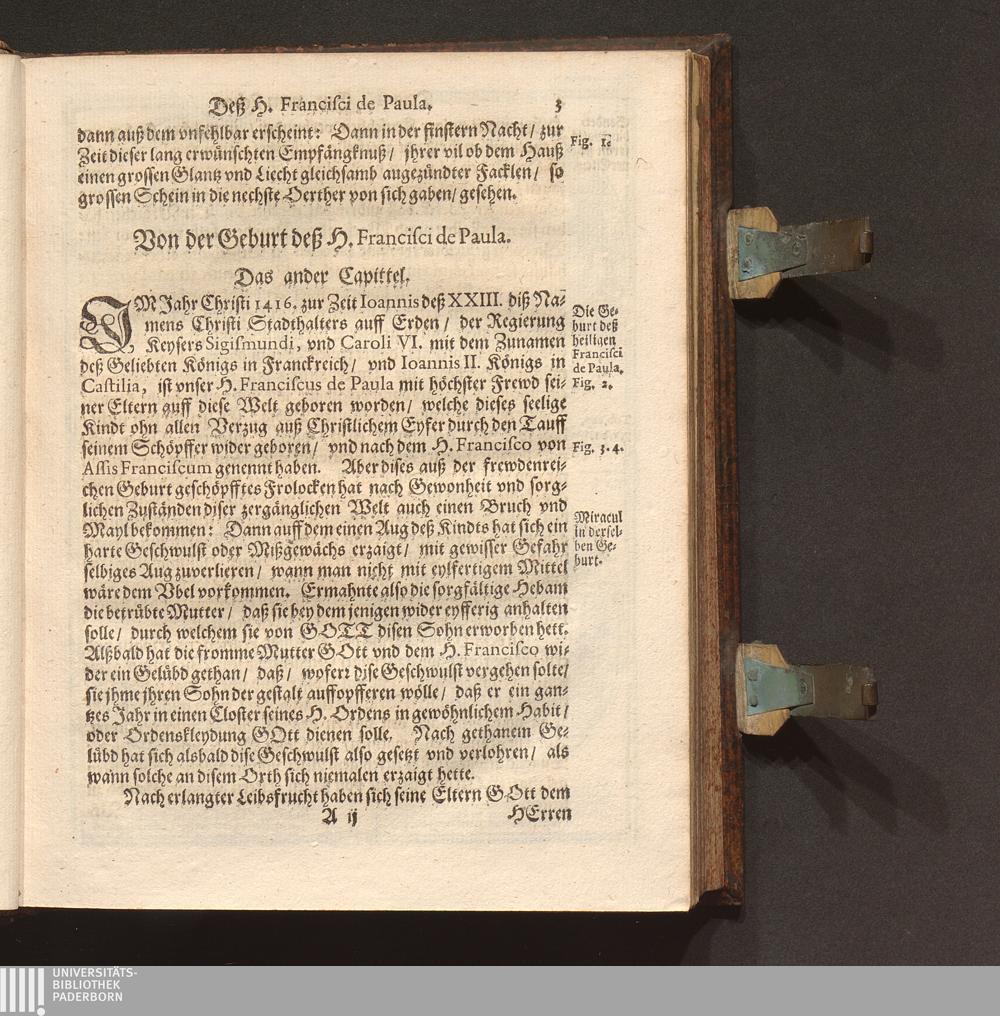 Deß H. Franciſci de Paula. 3
dann auß dem vnfehlbar erscheint: Dann in der finstern Nacht/ zur
Zeit dieser lang erwünschten Empfängknuß/ jhrer vil ob dem Hauß
einen grossen Glantz vnd Liecht gleichsamb angezündter Facklen/ so
grossen Schein in die nechste Oerther von sich gaben/ gesehen.
Fig. 1.
Von der Geburt deß H. Franciſci de Paula.
Das ander Capittel.
IM Jahr Christi 1416. zur Zeit Ioannis deß XXIII. diß Na-
mens Christi Stadthalters auff Erden/ der Regierung
Keysers Sigiſmundi, vnd Caroli VI. mit dem Zunamen
deß Geliebten Königs in Franckreich/ vnd Ioannis II. Königs in
Caſtilia, ist vnser H. Franciſcus de Paula mit höchster Frewd sei-
ner Eltern auff diese Welt geboren worden/ welche dieses seelige
Kindt ohn allen Verzug auß Christlichem Eyfer durch den Tauff
seinem Schöpffer wider geboren/ vnd nach dem H. Franciſco von
Aſſis Franciſcum genennt haben. Aber dises auß der frewdenrei-
chen Geburt geschöpfftes Frolocken hat nach Gewonheit vnd sorg-
lichen Zuständen diser zergänglichen Welt auch einen Bruch vnd
Mayl bekommen: Dann auff dem einen Aug deß Kindts hat sich ein
harte Geschwulst oder Mißgewächs erzaigt/ mit gewisser Gefahr
selbiges Aug zuverlieren/ wann man nicht mit eylfertigem Mittel
wäre dem Vbel vorkommen. Ermahnte also die sorgfältige Hebam
die betrübte Mutter/ daß sie bey dem jenigen wider eyfferig anhalten
solle/ durch welchem sie von GOTT disen Sohn erworben hett.
Alßbald hat die fromme Mutter GOtt vnd dem H. Franciſco wi-
der ein Gelübd gethan/ daß/ wofern dise Geschwulst vergehen solte/
sie jhme jhren Sohn der gestalt auffopfferen wölle/ daß er ein gan-
tzes Jahr in einen Closter seines H. Ordens in gewöhnlichem Habit/
oder Ordenskleydung GOtt dienen solle. Nach gethanem Ge-
lübd hat sich alsbald dise Geschwulst also gesetzt vnd verlohren/ als
wann solche an disem Orth sich niemalen erzaigt hette.
Nach erlangter Leibsfrucht haben sich seine Eltern GOtt dem
A ij HErren
Die Ge-
burt deß
heiligen
Franciſci
de Paula.
Fig. 2.
Fig. 3. 4.
Miracul
in dersel-
ben Ge-
burt.
UNIVERSITÄTS-
BIBLIOTHEK
PADERBORN